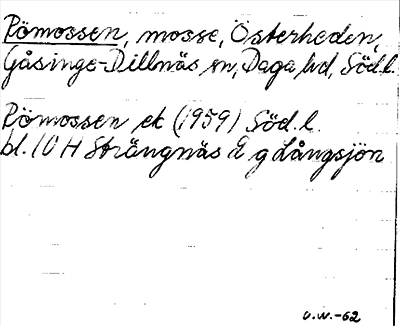 Römossen, mosse, Österheden,
Gåsinge-Dillnäs sn, Daga hd, Söd.l.
Römossen ek (1959) Söd.l.
bl. 10 H Strängnäs
g Långsjön
U.W.-62